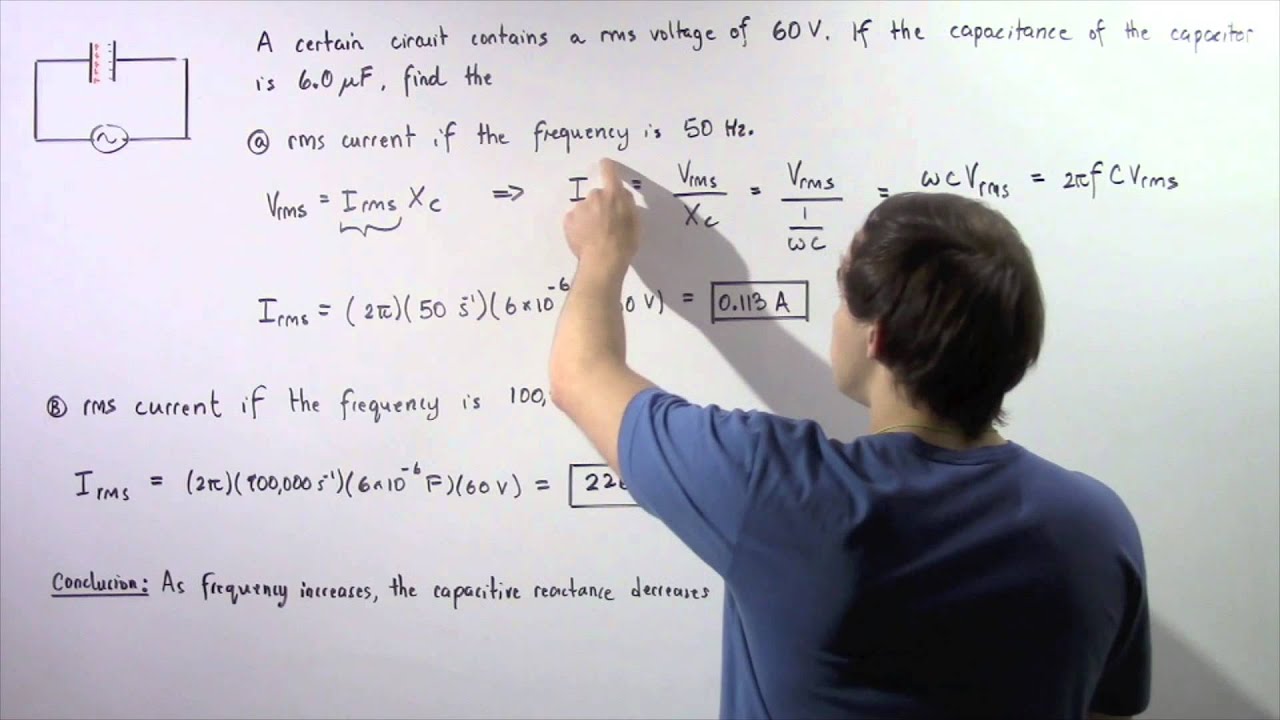 A certain circuit contains a rms voltage of 60 V. If the capacitance of the capacitor
is 6.0 μF, find the
ⓐ rms current if the frequency is 50 Hz.
Vrms = Irms Xc => I = Vrms/Xc = Vrms/(1/ωC) = ωCVrms = 2πfCVrms
Irms = (2π)(50 s⁻¹)(6×10⁻⁶ 0 V) = 0.113 A
Ⓑ rms current if the frequency is 100,
Irms = (2π)(100,000 s⁻¹)(6×10⁻⁶ F)(60 V) = 22
Conclucion: As frequency increases, the capacitive reactance decreases